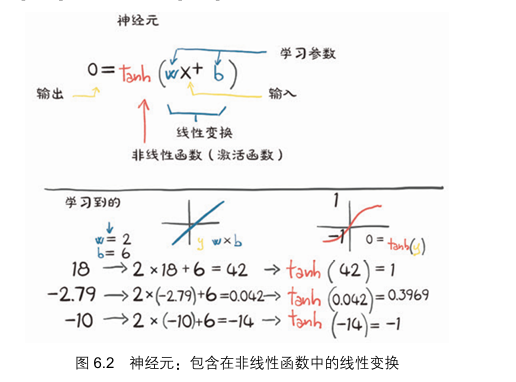 神经元
学习参数
o=tanh(wx+b)
输出
输入
线性变换
非线性函数（激活函数）
学习到的
w=2
b=6
y wxb
1
-1
o=tanh(y)
18 → 2×18+6=42 → tanh(42)=1
-2.79 → 2×(-2.79)+6=0.042 → tanh(0.042)=0.3969
-10 → 2×(-10)+6=-14 → tanh(-14)=-1
图 6.2 神经元：包含在非线性函数中的线性变换